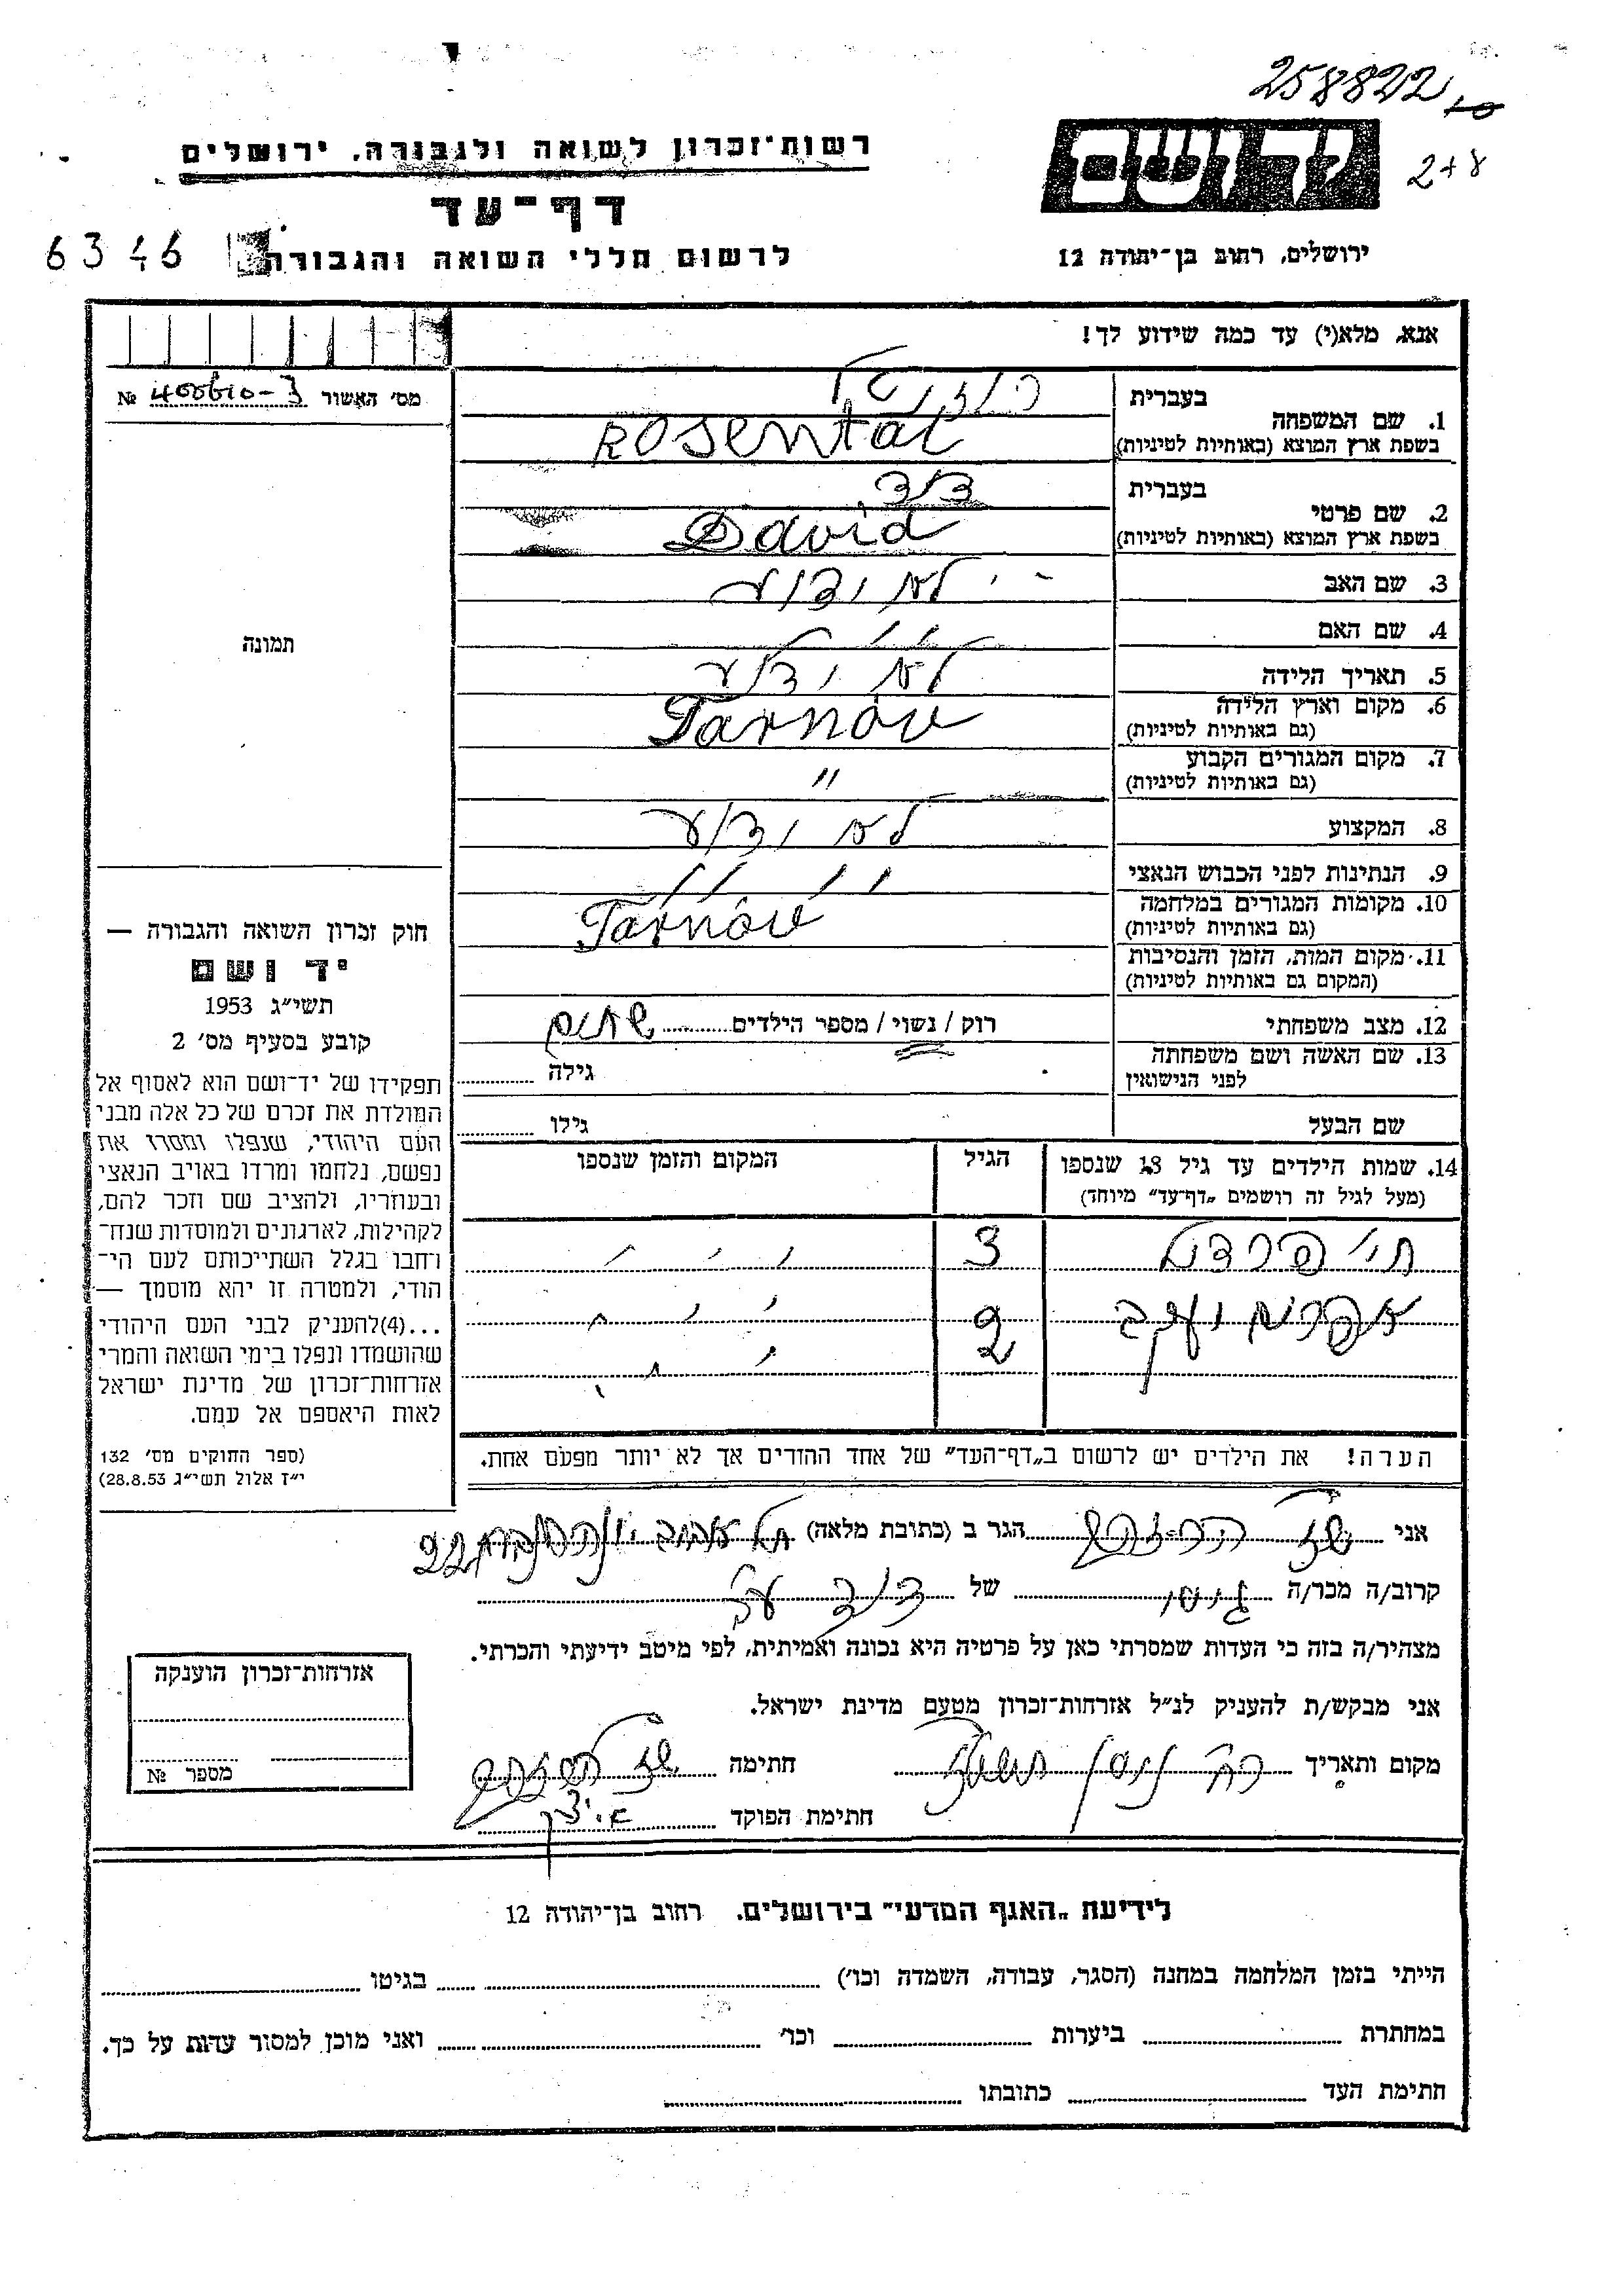 258822
רשות־זכרון לשואה ולגבורה, ירושלים
דף־עד
לרשום חללי השואה והגבורה
6346
ידושם
278
ירושלים, רחוב בן־יהודה 12
אנא, מלא(י) עד כמה שידוע לך!
מס׳ האשור №
1. שם המשפחה
בעברית רוזנטל
בשפת ארץ המוצא (באותיות לטיניות) Rosental
2. שם פרטי
בעברית דוד
בשפת ארץ המוצא (באותיות לטיניות) David
3. שם האב לא ידוע
4. שם האם " "
5. תאריך הלידה לא ידוע
6. מקום וארץ הלידה (גם באותיות לטיניות) Tarnów
7. מקום המגורים הקבוע (גם באותיות לטיניות) "
8. המקצוע לא ידוע
9. הנתינות לפני הכבוש הנאצי " "
10. מקומות המגורים במלחמה (גם באותיות לטיניות) Tarnów
11. מקום המות, הזמן והנסיבות
(המקום גם באותיות לטיניות)
12. מצב משפחתי רוק / נשוי / מספר הילדים שתים
13. שם האשה ושם משפחתה לפני הנישואין גילה
שם הבעל גילו
14. שמות הילדים עד גיל 18 שנספו
(מעל לגיל זה רושמים „דף־עד״ מיוחד)
הגיל
המקום והזמן שנספו
3
2
הערה! את הילדים יש לרשום ב„דף־העד״ של אחד ההורים אך לא יותר מפעם אחת.
תמונה
חוק זכרון השואה והגבורה —
יד ושם
תשי״ג 1953
קובע בסעיף מס׳ 2
תפקידו של יד־ושם הוא לאסוף אל
המולדת את זכרם של כל אלה מבני
העם היהודי, שנפלו ומסרו את
נפשם, נלחמו ומרדו באויב הנאצי
ובעוזריו, ולהציב שם וזכר להם,
לקהילות, לארגונים ולמוסדות שנח־
רחבו בגלל השתייכותם לעם הי־
הודי, ולמטרה זו יהא מוסמך —
...(4)להעניק לבני העם היהודי
שהושמדו ונפלו בימי השואה והמרי
אזרחות־זכרון של מדינת ישראל
לאות היאספם אל עמם.
(ספר החוקים מס׳ 132
י״ז אלול תשי״ג 28.8.53)
אני הגר ב (כתובת מלאה) תל אביב 22
קרוב/ה מכר/ה גיסו של דוד
מצהיר/ה בזה כי העדות שמסרתי כאן על פרטיה היא נכונה ואמיתית, לפי מיטב ידיעתי והכרתי.
אני מבקש/ת להעניק לנ״ל אזרחות־זכרון מטעם מדינת ישראל.
מקום ותאריך חתימה
חתימת הפוקד
אזרחות־זכרון הוענקה
מספר №
לידיעת „האגף המדעי״ בירושלים, רחוב בן־יהודה 12
הייתי בזמן המלחמה במחנה (הסגר, עבודה, השמדה וכו׳) בגיטו
במחתרת ביערות וכו׳ ואני מוכן למסור עדות על כך.
חתימת העד כתובתו